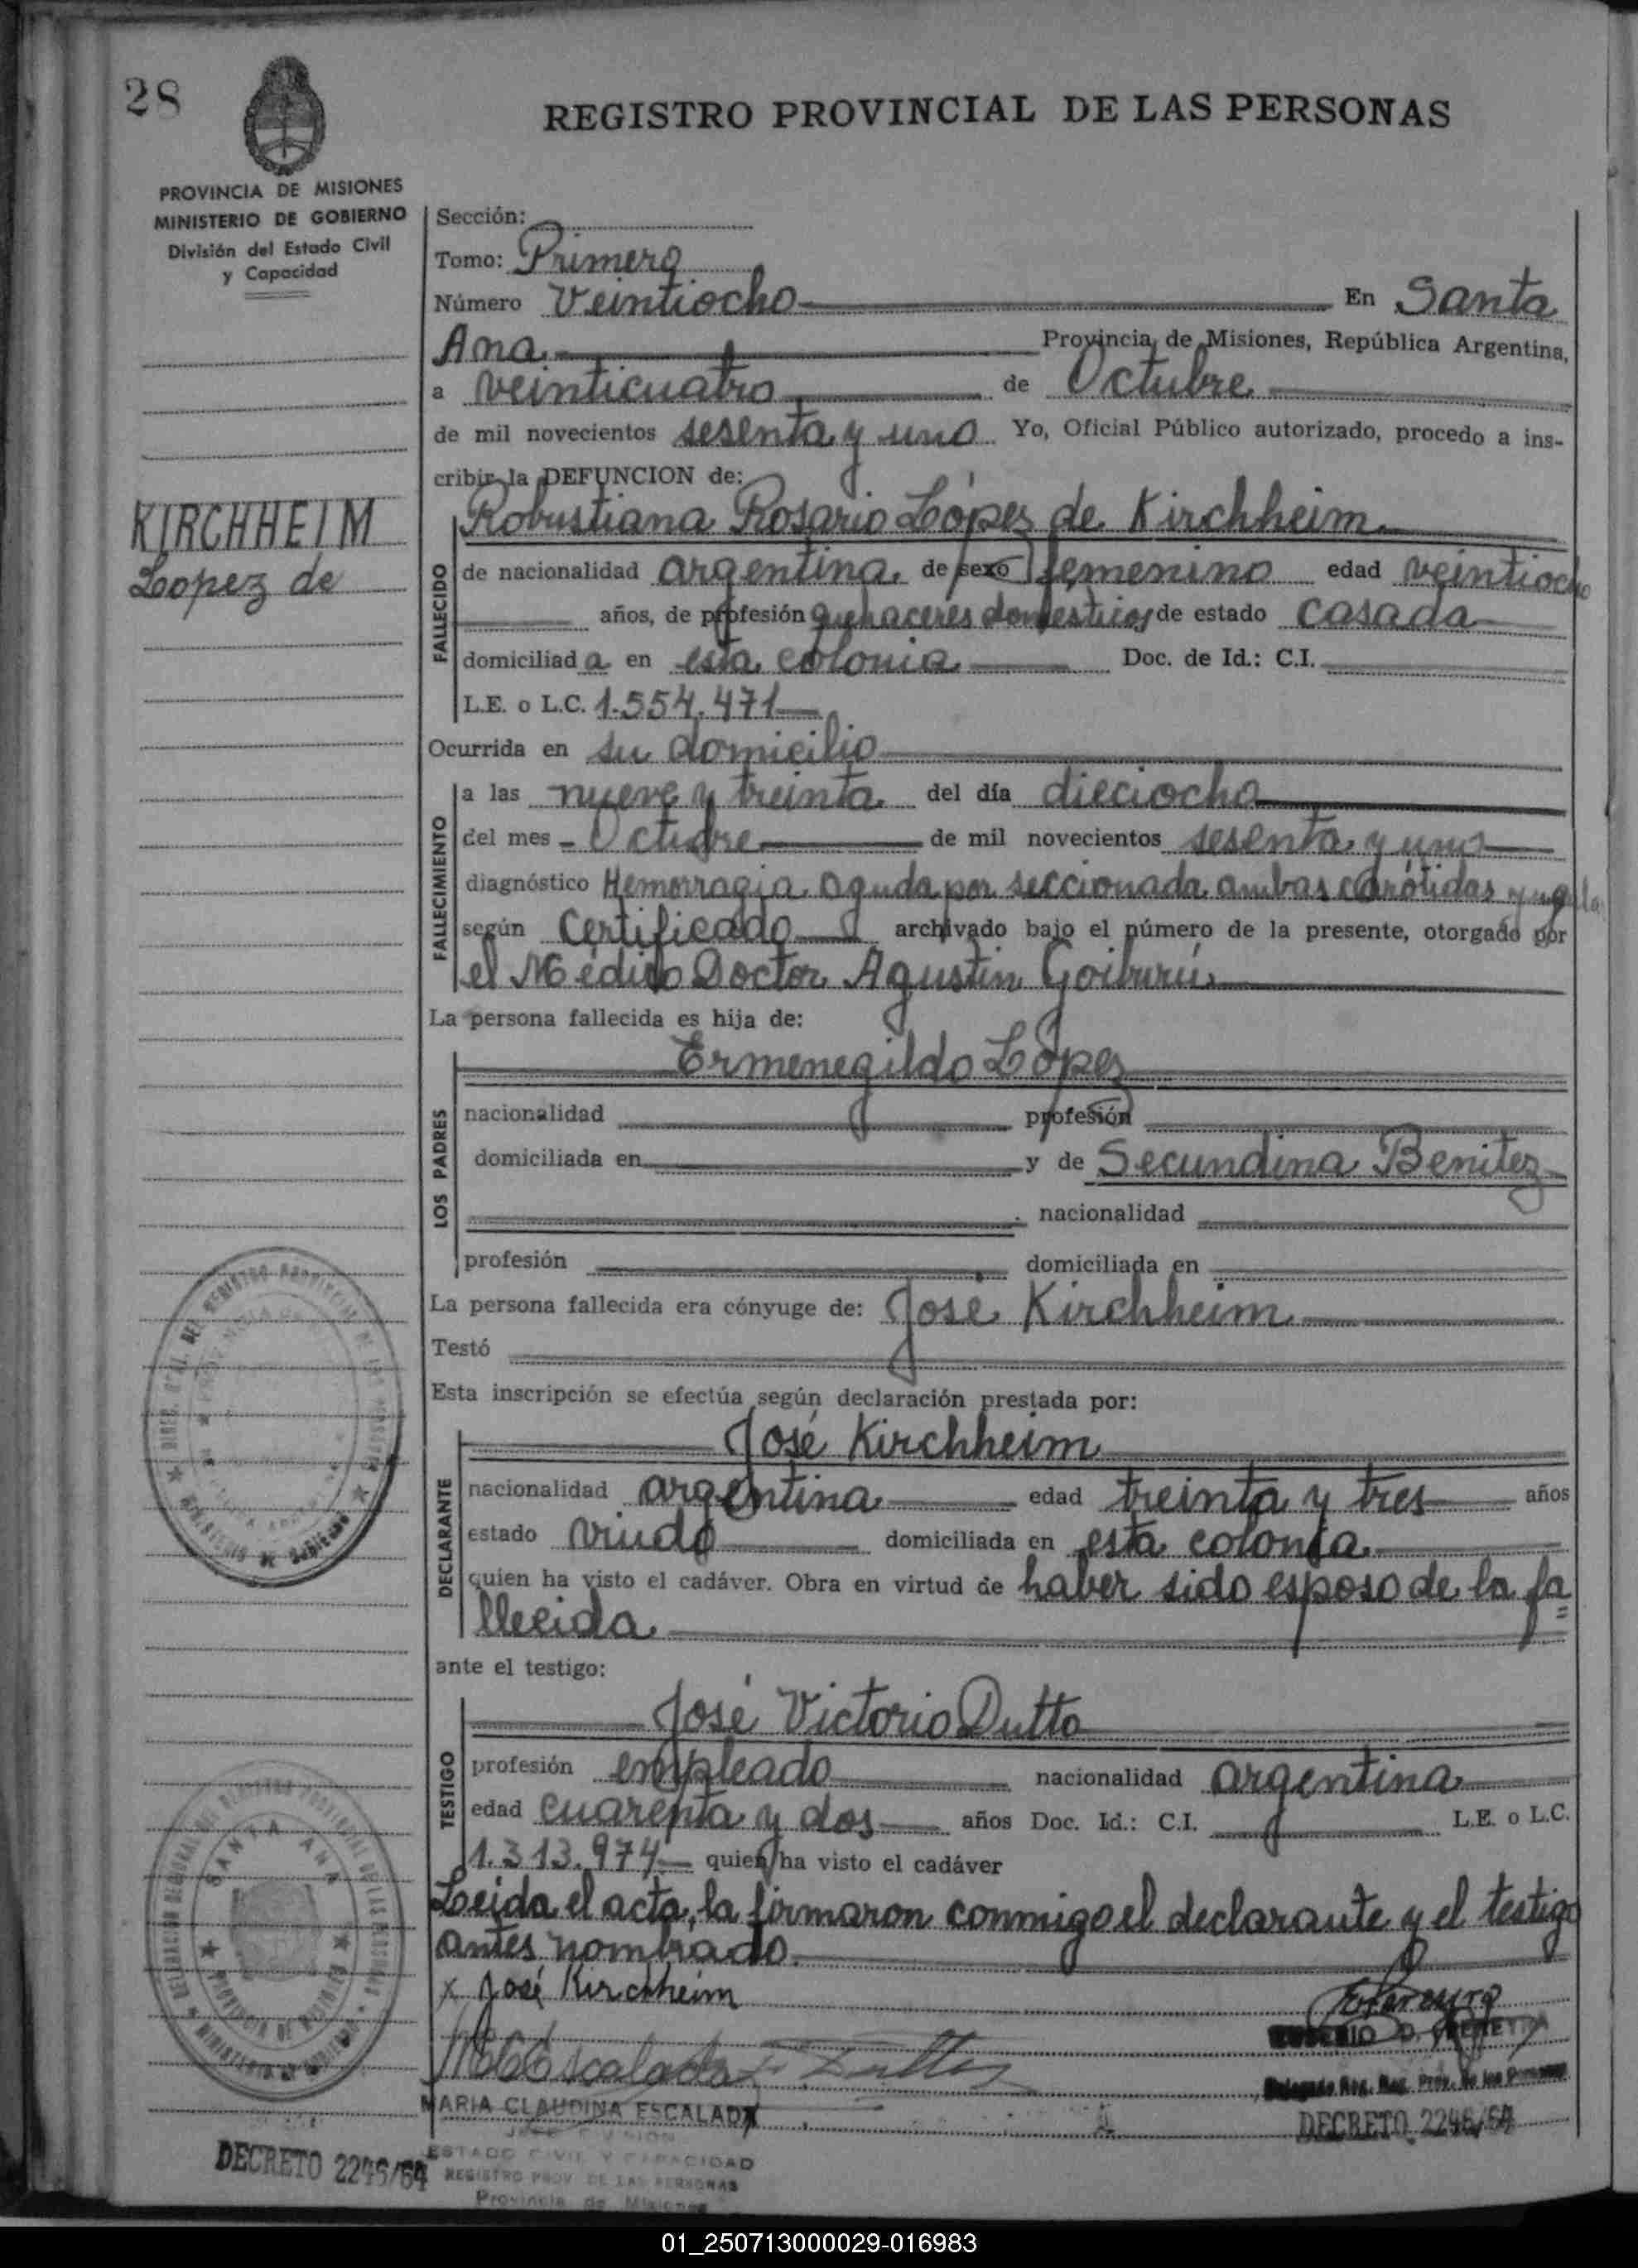 28
REGISTRO PROVINCIAL DE LAS PERSONAS
PROVINCIA DE MISIONES
MINISTERIO DE GOBIERNO
División del Estado Civil
y Capacidad
KIRCHHEIM
Lopez de
Sección:
Tomo: Primero
Número Veintiocho En Santa
Ana Provincia de Misiones, República Argentina,
a veinticuatro de Octubre
de mil novecientos sesenta y uno Yo, Oficial Público autorizado, procedo a ins-
cribir la DEFUNCION de:
Robustiana Rosario López de Kirchheim
FALLECIDO
de nacionalidad argentina de sexo femenino edad veintiocho
años, de profesión quehaceres domésticos de estado casada
domiciliada en esta colonia Doc. de Id.: C.I.
L.E. o L.C. 1.554.471
Ocurrida en su domicilio
FALLECIMIENTO
a las nueve y treinta del día dieciocho
del mes Octubre de mil novecientos sesenta y uno
diagnóstico Hemorragia aguda por seccionada ambas carótidas
según Certificado archivado bajo el número de la presente, otorgado por
el Médico Doctor Agustin Goiburú
La persona fallecida es hija de:
Ermenegildo López
LOS PADRES
nacionalidad profesión
domiciliada en y de Secundina Benitez
nacionalidad
profesión domiciliada en
La persona fallecida era cónyuge de: José Kirchheim
Testó
Esta inscripción se efectúa según declaración prestada por:
José Kirchheim
DECLARANTE
nacionalidad argentina edad treinta y tres años
estado viudo domiciliada en esta colonia
quien ha visto el cadáver. Obra en virtud de haber sido esposo de la fa=
llecida
ante el testigo:
José Victorio Dutto
TESTIGO
profesión empleado nacionalidad argentina
edad cuarenta y dos años Doc. Id.: C.I. L.E. o L.C.
1.313.974 quien ha visto el cadáver
Leida el acta, la firmaron conmigo el declarante y el testigo
antes nombrado.
x José Kirchheim
MARIA CLAUDINA ESCALADA
DECRETO 2246/64
DECRETO 2246/64
ESTADO CIVIL Y CAPACIDAD
REGISTRO PROV. DE LAS PERSONAS
Provincia de Misiones
SANTA ANA
PROVINCIA DE MISIONES
01_250713000029-016983